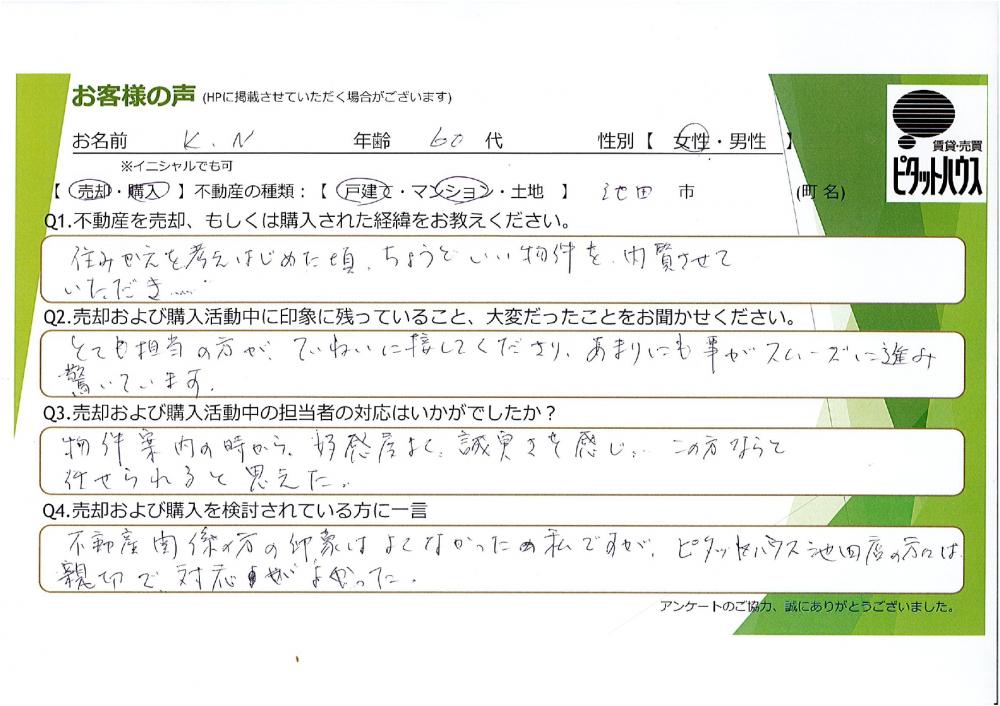 お客様の声 (HPに掲載させていただく場合がございます)
お名前 K.N 年齢 60 代 性別【 女性・男性 】
※イニシャルでも可
賃貸・売買
ピタットハウス
【 売却・購入 】不動産の種類:【 戸建て・マンション・土地 】 池田 市 (町名)
Q1.不動産を売却、もしくは購入された経緯をお教えください。
住みかえを考えはじめた頃、ちょうどいい物件を、内覧させて
いただき……
Q2.売却および購入活動中に印象に残っていること、大変だったことをお聞かせください。
とても担当の方が、ていねいに接してくださり、あまりにも事がスムーズに進み
驚いています。
Q3.売却および購入活動中の担当者の対応はいかがでしたか?
物件案内の時から、好感度よく、誠実さを感じ… この方ならと
任せられると思えた。
Q4.売却および購入を検討されている方に一言
不動産関係の方の印象はよくなかったの私ですが、ピタットハウス池田店の方は
親切で、対応がよかった。
アンケートのご協力、誠にありがとうございました。